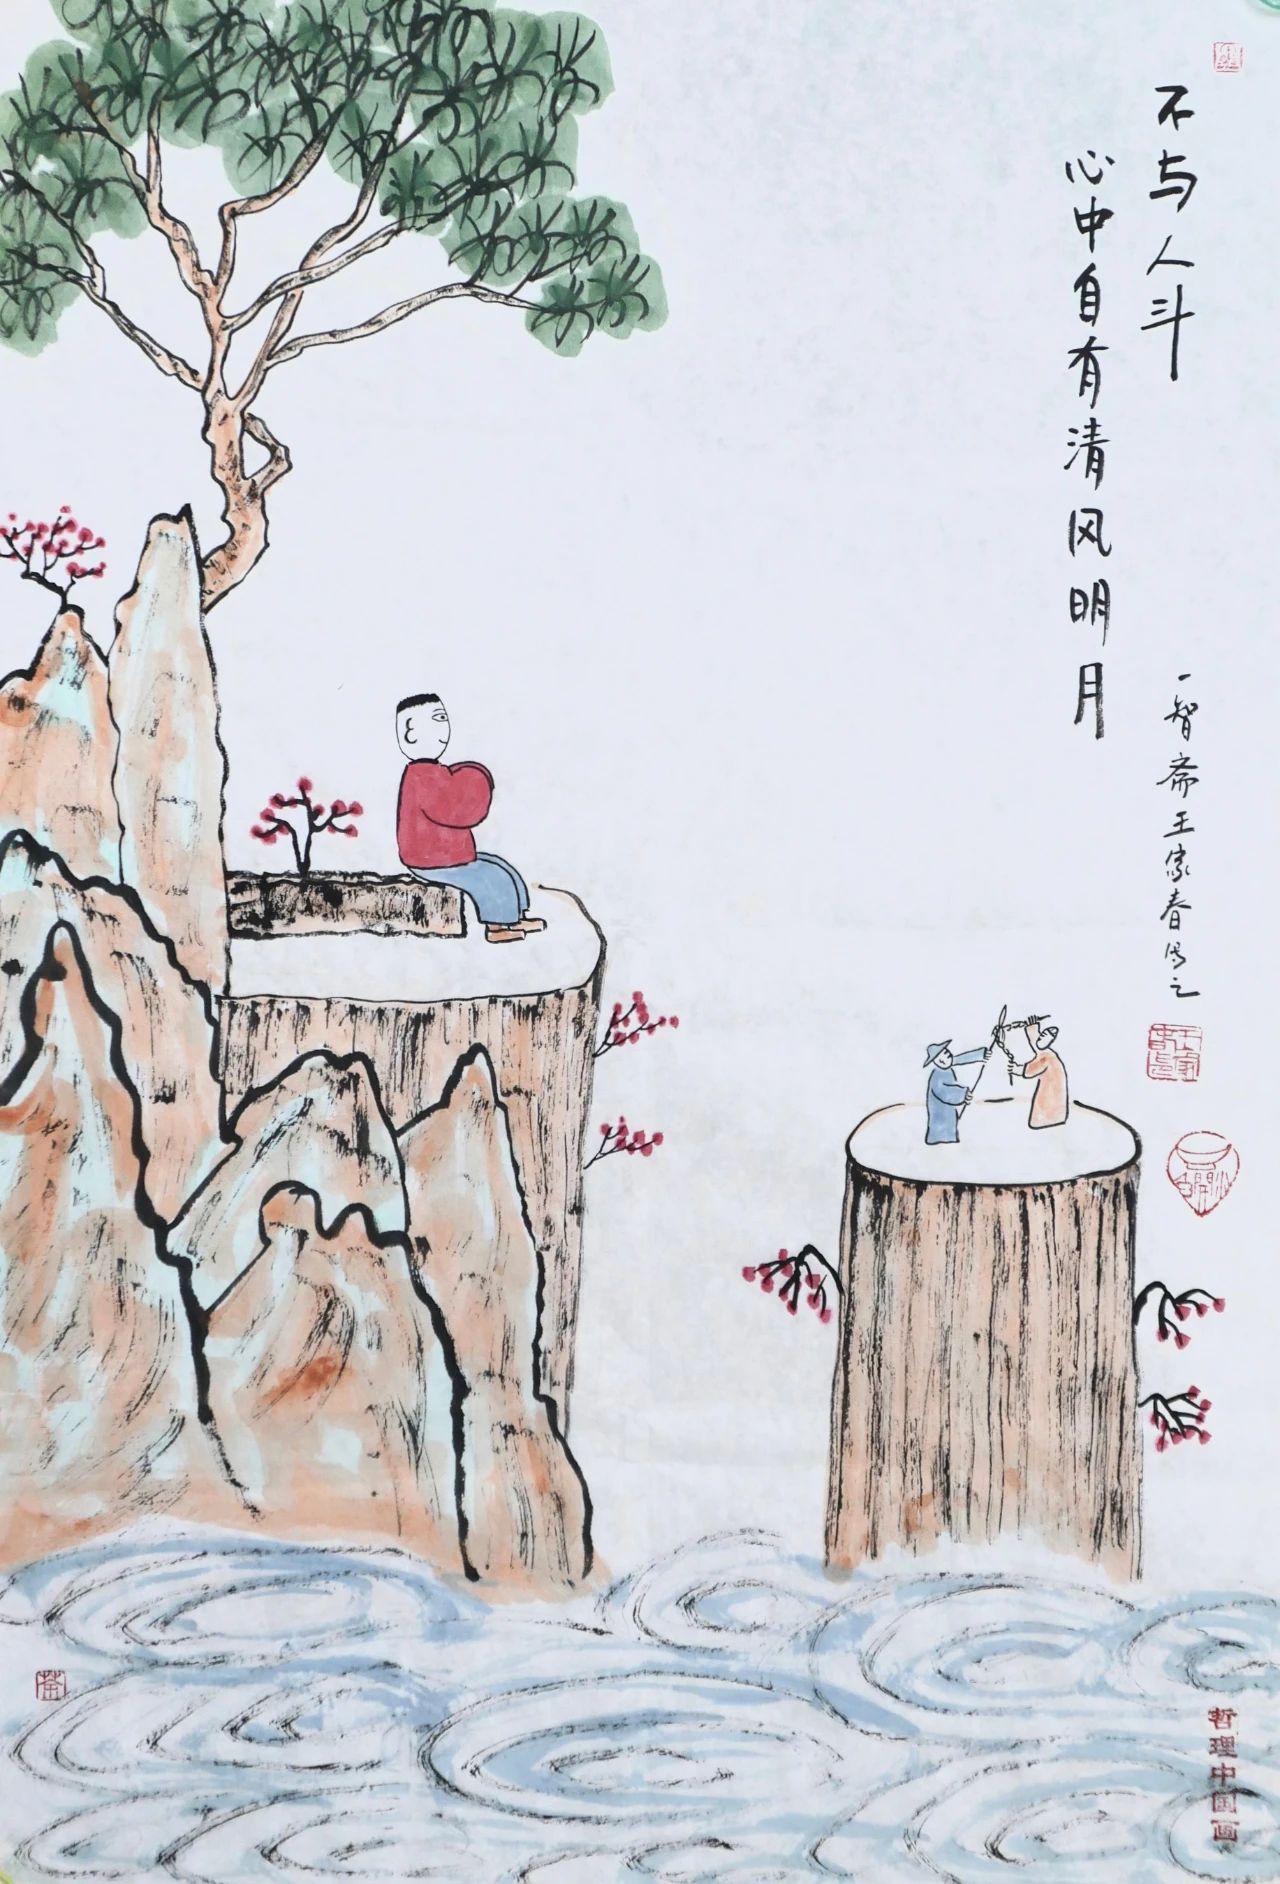 不与人斗
心中自有清风明月
一智斋王家春写之
哲理中国画